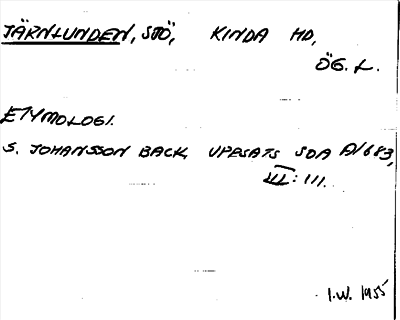 JÄRNLUNDEN, SJÖ, KINDA HD,
ÖG. L.
ETYMOLOGI.
S. JOHANSSON BACK, UPPSATS SOA A1683,
III: 111.
I.W. 1955